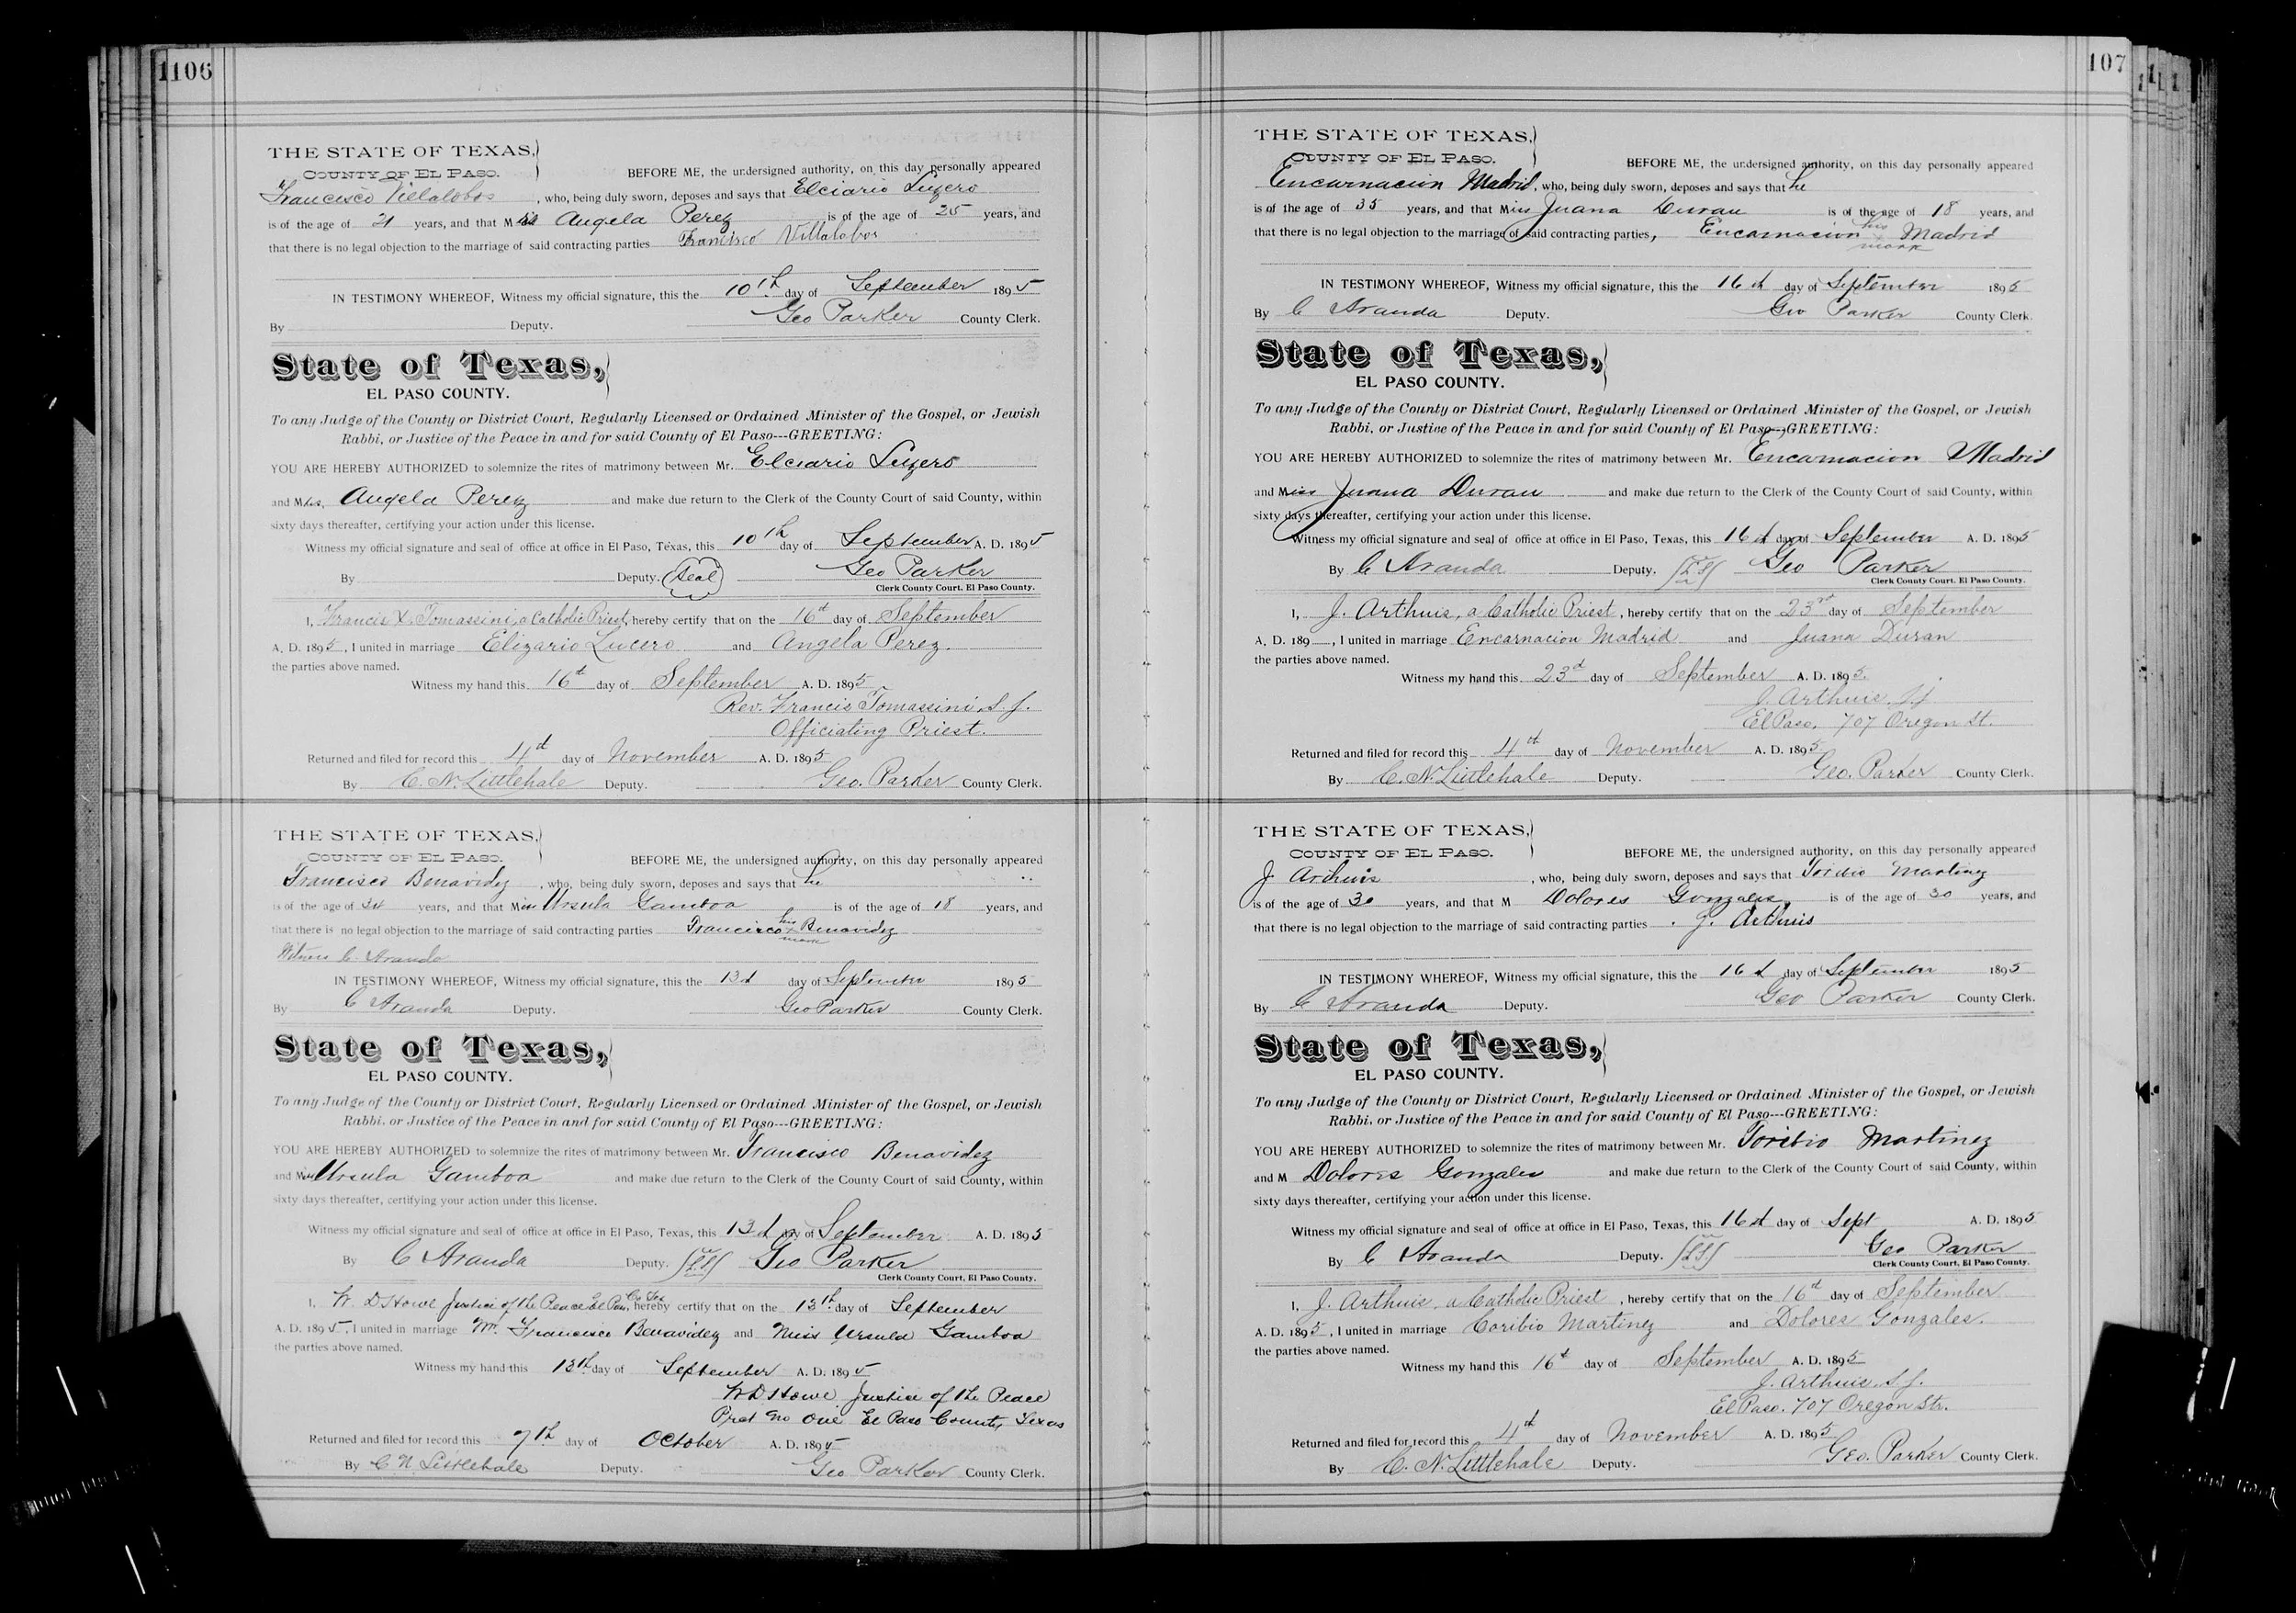 106
THE STATE OF TEXAS,
COUNTY OF EL PASO.
BEFORE ME, the undersigned authority, on this day personally appeared
Francisco Villalobos, who, being duly sworn, deposes and says that Elciario Luzero
is of the age of 21 years, and that Mrs Angela Perez is of the age of 25 years, and
that there is no legal objection to the marriage of said contracting parties Francisco Villalobos
IN TESTIMONY WHEREOF, Witness my official signature, this the 10th day of September 1895
Geo Parker County Clerk.
By Deputy.
State of Texas,
EL PASO COUNTY.
To any Judge of the County or District Court, Regularly Licensed or Ordained Minister of the Gospel, or Jewish
Rabbi, or Justice of the Peace in and for said County of El Paso---GREETING:
YOU ARE HEREBY AUTHORIZED to solemnize the rites of matrimony between Mr. Elciario Luzero
and Mrs, Angela Perez and make due return to the Clerk of the County Court of said County, within
sixty days thereafter, certifying your action under this license.
Witness my official signature and seal of office at office in El Paso, Texas, this 10th day of September A. D. 1895
By Deputy. (Seal) Geo Parker
Clerk County Court, El Paso County.
I, Francis X. Tomassini, a Catholic Priest, hereby certify that on the 16th day of September
A. D. 1895, I united in marriage Elizario Lucero and Angela Perez.
the parties above named.
Witness my hand this 16th day of September A. D. 1895
Rev. Francis Tomassini, S. J.
Officiating Priest.
Returned and filed for record this 4th day of November A. D. 1895
By C. N. Littlehale Deputy. Geo. Parker County Clerk.
THE STATE OF TEXAS,
COUNTY OF EL PASO.
BEFORE ME, the undersigned authority, on this day personally appeared
Francisco Benavidez, who, being duly sworn, deposes and says that he
is of the age of 34 years, and that Miss Ursula Gamboa is of the age of 18 years, and
that there is no legal objection to the marriage of said contracting parties Francisco his x mark Benavidez
Witness C. Aranda
IN TESTIMONY WHEREOF, Witness my official signature, this the 13th day of September 1895
By C Aranda Deputy. Geo Parker County Clerk.
State of Texas,
EL PASO COUNTY.
To any Judge of the County or District Court, Regularly Licensed or Ordained Minister of the Gospel, or Jewish
Rabbi, or Justice of the Peace in and for said County of El Paso---GREETING:
YOU ARE HEREBY AUTHORIZED to solemnize the rites of matrimony between Mr. Francisco Benavidez
and Miss Ursula Gamboa and make due return to the Clerk of the County Court of said County, within
sixty days thereafter, certifying your action under this license.
Witness my official signature and seal of office at office in El Paso, Texas, this 13th day of September A. D. 1895
By C Aranda Deputy. (LS) Geo Parker
Clerk County Court, El Paso County.
I, W. D Howe Justice of the Peace El Paso Co Tex hereby certify that on the 13th day of September
A. D. 1895, I united in marriage Mr. Francisco Benavidez and Miss Ursula Gamboa
the parties above named.
Witness my hand this 13th day of September A. D. 1895
W D Howe Justice of the Peace
Prct No One El Paso County, Texas
Returned and filed for record this 7th day of October A. D. 1895
By C N Littlehale Deputy. Geo Parker County Clerk.
107
THE STATE OF TEXAS,
COUNTY OF EL PASO.
BEFORE ME, the undersigned authority, on this day personally appeared
Encarnacion Madrid, who, being duly sworn, deposes and says that he
is of the age of 35 years, and that Miss Juana Duran is of the age of 18 years, and
that there is no legal objection to the marriage of said contracting parties, Encarnacion his x mark Madrid
IN TESTIMONY WHEREOF, Witness my official signature, this the 16th day of September 1895
By C Aranda Deputy. Geo Parker County Clerk.
State of Texas,
EL PASO COUNTY.
To any Judge of the County or District Court, Regularly Licensed or Ordained Minister of the Gospel, or Jewish
Rabbi, or Justice of the Peace in and for said County of El Paso---GREETING:
YOU ARE HEREBY AUTHORIZED to solemnize the rites of matrimony between Mr. Encarnacion Madrid
and Miss Juana Duran and make due return to the Clerk of the County Court of said County, within
sixty days thereafter, certifying your action under this license.
Witness my official signature and seal of office at office in El Paso, Texas, this 16th day of September A. D. 1895
By C Aranda Deputy. (LS) Geo Parker
Clerk County Court, El Paso County.
I, J. Arthuis, a Catholic Priest, hereby certify that on the 23rd day of September
A. D. 189 , I united in marriage Encarnacion Madrid and Juana Duran
the parties above named.
Witness my hand this 23d day of September A. D. 1895.
J. Arthuis, S. J.
El Paso, 707 Oregon St.
Returned and filed for record this 4th day of November A. D. 1895
By C. N. Littlehale Deputy. Geo. Parker County Clerk.
THE STATE OF TEXAS,
COUNTY OF EL PASO.
BEFORE ME, the undersigned authority, on this day personally appeared
J Arthuis, who, being duly sworn, deposes and says that Toribio Martinez
is of the age of 30 years, and that M Dolores Gonzales, is of the age of 30 years, and
that there is no legal objection to the marriage of said contracting parties J. Arthuis
IN TESTIMONY WHEREOF, Witness my official signature, this the 16th day of September 1895
By C Aranda Deputy. Geo Parker County Clerk.
State of Texas,
EL PASO COUNTY.
To any Judge of the County or District Court, Regularly Licensed or Ordained Minister of the Gospel, or Jewish
Rabbi, or Justice of the Peace in and for said County of El Paso---GREETING:
YOU ARE HEREBY AUTHORIZED to solemnize the rites of matrimony between Mr. Toribio Martinez
and M Dolores Gonzales and make due return to the Clerk of the County Court of said County, within
sixty days thereafter, certifying your action under this license.
Witness my official signature and seal of office at office in El Paso, Texas, this 16th day of Sept A. D. 1895
By C Aranda Deputy. (LS) Geo Parker
Clerk County Court, El Paso County.
I, J. Arthuis, a Catholic Priest, hereby certify that on the 16th day of September
A. D. 1895, I united in marriage Coribio Martinez and Dolores Gonzales.
the parties above named.
Witness my hand this 16th day of September A. D. 1895
J. Arthuis, S. J.
El Paso. 707 Oregon Str.
Returned and filed for record this 4th day of November A. D. 1895
By C. N. Littlehale Deputy. Geo. Parker County Clerk.